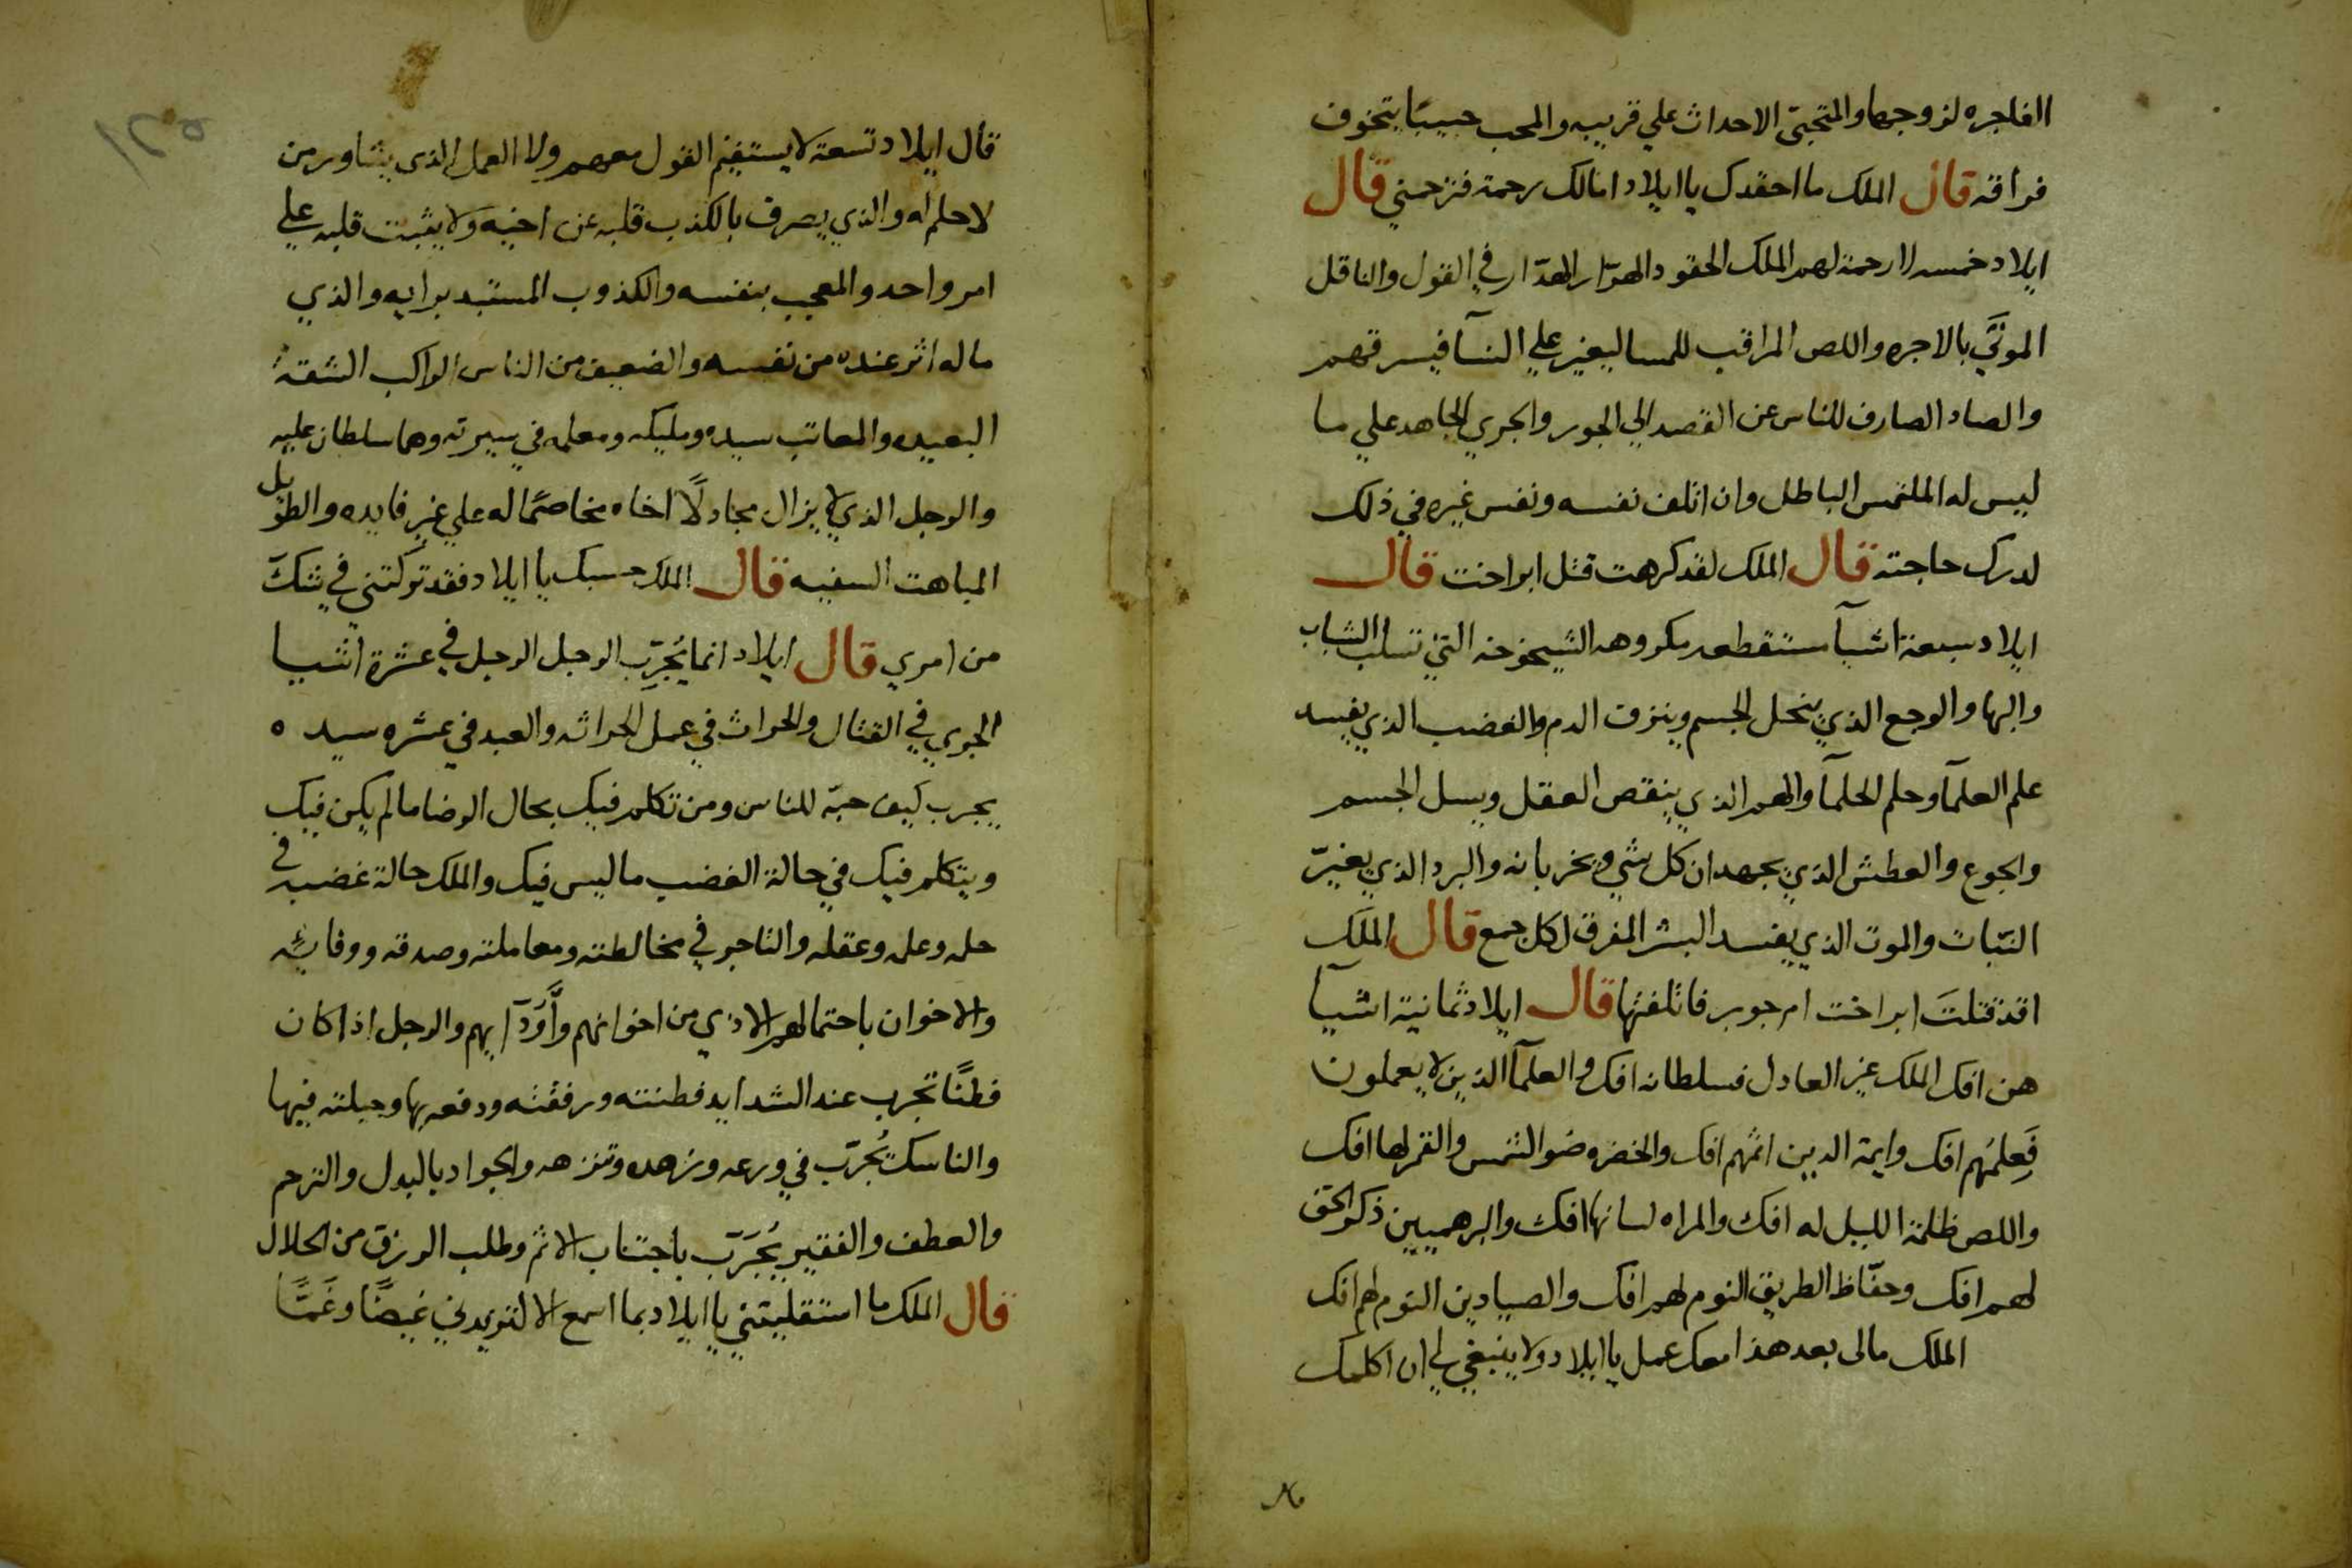 الفاجره لزوجها والمتجني الاحداث علي قريبه والمحب حبيبًا يتخوف
فراقه قال الملك ما احقدك يا ايلاد امالك رحمة فترحمني قال
ايلاد خمسه لا رحمة لهم الملك الحقود المهدار في القول والناقل
الموتي بالاجره واللص المراقب للمسا ليغير علي النسآ فيسرقهم
والصاد الصارف للناس عن القصد الي الجور والجري المجاهد علي ما
ليس له الملتمس الباطل وان اتلف نفسه ونفس غيره في ذلك
لدرك حاجته قال الملك لقد كرهت قتل ابراخت قال
ايلاد سبعة اشيآ مكروهه الشيخوخه التي تسلب الشباب
والبها والوجع الذي ينحل الجسم وينزف الدم والغضب الذي يفسد
علم العلمآ وحلم الحلمآ والهم الذي ينقص العقل ويسل الجسم
والجوع والعطش الذي يجهدان كل شي ويخربانه والبرد الذي يغيّر
النبات والموت الذي يفسد البشر المفرق لكل جمع قال الملك
اقد قتلتَ ابراخت ام جوبر فاتلفتها قال ايلاد ثمانية اشيآ
هن افك الملك غير العادل فسلطانه افك والعلمآ الذين لا يعملون
فَعِلمُهم افك وايمة الدين اثمهم افك والخضره ضو الشمس والقمر لها افك
واللص ظلمة الليل له افك والمراه لسانها افك والبرهميين ذكر الحق
لهم افك وحفّاظ الطريق النوم لهم افك والصيادين النوم لهم افك
الملك مالى بعد هذا معك عمل يا ايلاد ولا ينبغي لي ان اكلمك
قال ايلاد تسعة لا يستقيم القول معهم ولا العمل الذي يشاور من
لا حلم له والذي يصرف بالكذب قلبه عن اخيه ولا يثبت قلبه علي
امر واحد والمعجب بنفسه والكذوب المستبد برايه والذي
ماله اثر عنده من نفسه والضعيف من الناس الراكب الشقة
البعيده والمعاتب سيده ومليكه ومعلمه في سيرته وهما سلطان عليه
والرجل الذي لا يزال مجادلًا اخاه مخاصمًا له علي غير فايده والطويل
المباهت السفيه قال الملك حسبك يا ايلاد فقد تركتني في شكّ
من امري قال ايلاد انما يُجرَّب الرجل الرجل في عشرة اشيا
الجري في القتال والحراث في عمل الحراثه والعبد في عشره سيده
يجرب كيف حبّه للناس ومن تكلم فيك بحال الرضا مالم يكن فيك
ويتكلم فيك في حالة الغضب ما ليس فيك والملك حالة غضبه في
حلمه وعلمه وعقله والتاجر في مخالطته ومعاملته وصدقه ووفائه
والاخوان باحتمالهم الاذي من اخوانهم واَوُدّآيهم والرجل اذا كان
فطنًا تجرب عند الشدايد فطنته ورفقته ودفعه بها وحيلته فيها
والناسك يُجرّب في ورعه وزهده وتنزهه والجواد بالبدل والترحم
والعطف والفقير يُجَرَّب باجتناب الاثم وطلب الرزق من الحلال
قال الملك ما استقلبتني يا ايلاد بما اسمع الا لتزيدني غيضًا وغَمًّا